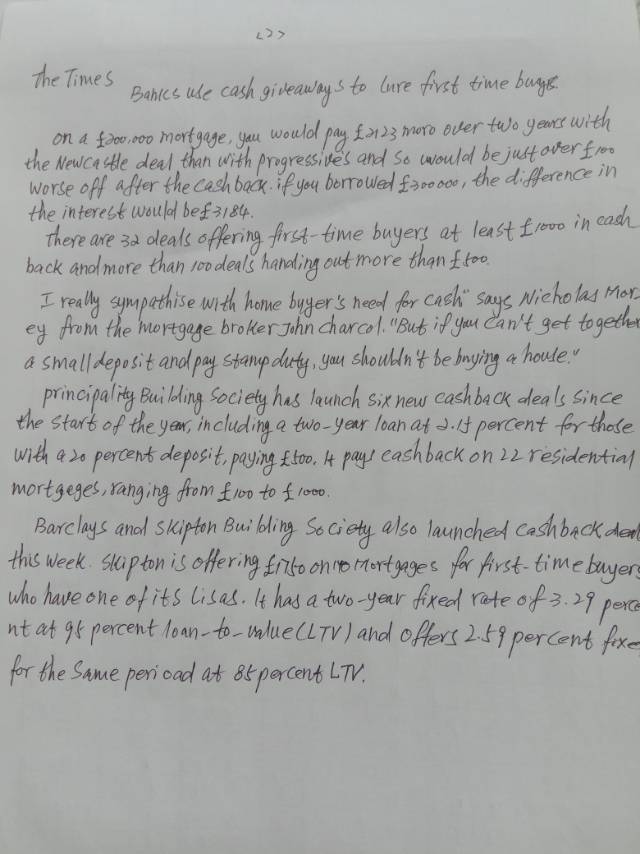 <2>
The Times
Banks use cash giveaways to lure first time buyers.
on a £200,000 mortgage, you would pay £2123 more over two years with
the Newcastle deal than with progressive's and so would be just over £100
worse off after the cashback. if you borrowed £300000, the difference in
the interest would be £3184.
There are 32 deals offering first-time buyers at least £1000 in cash
back and more than 100 deals handing out more than £500.
I really sympathise with home buyer's need for cash" says Nicholas Mor
ey from the mortgage broker John charcol. "But if you can't get together
a small deposit and pay stamp duty, you shouldn't be buying a house."
principality Building Society has launch six new cashback deals since
the start of the year, including a two-year loan at 2.15 percent for those
with a 20 percent deposit, paying £500. It pays cashback on 22 residential
mortgeges, ranging from £100 to £1000.
Barclays and Skipton Building Society also launched cashback deal
this week. Skipton is offering £1750 on 10 Mortgages for first-time buyers
who have one of its Lisas. It has a two-year fixed rate of 3.29 perce
nt at 95 percent loan-to-value (LTV) and offers 2.59 percent fixe
for the same perioad at 85 percent LTV.